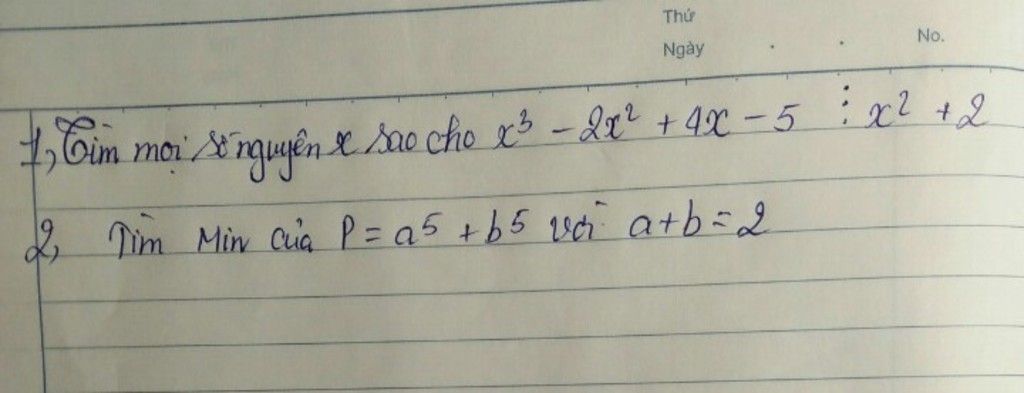 Thứ
Ngày . . No.
1, Tìm mọi số nguyên x sao cho x³ - 2x² + 4x - 5 ⋮ x² + 2
2, Tìm Min của P = a⁵ + b⁵ với a + b = 2